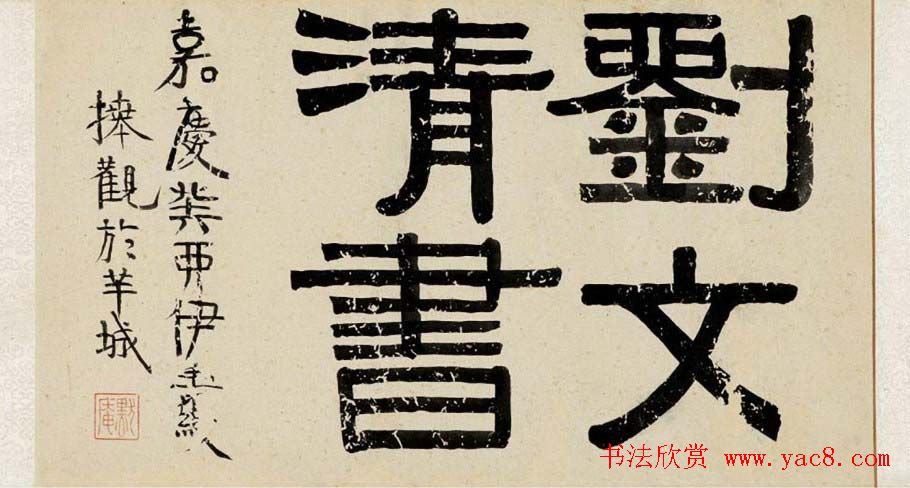 劉文
清書
嘉慶癸酉伊秉綬
捧觀於羊城
默庵
书法欣赏 www.yac8.com